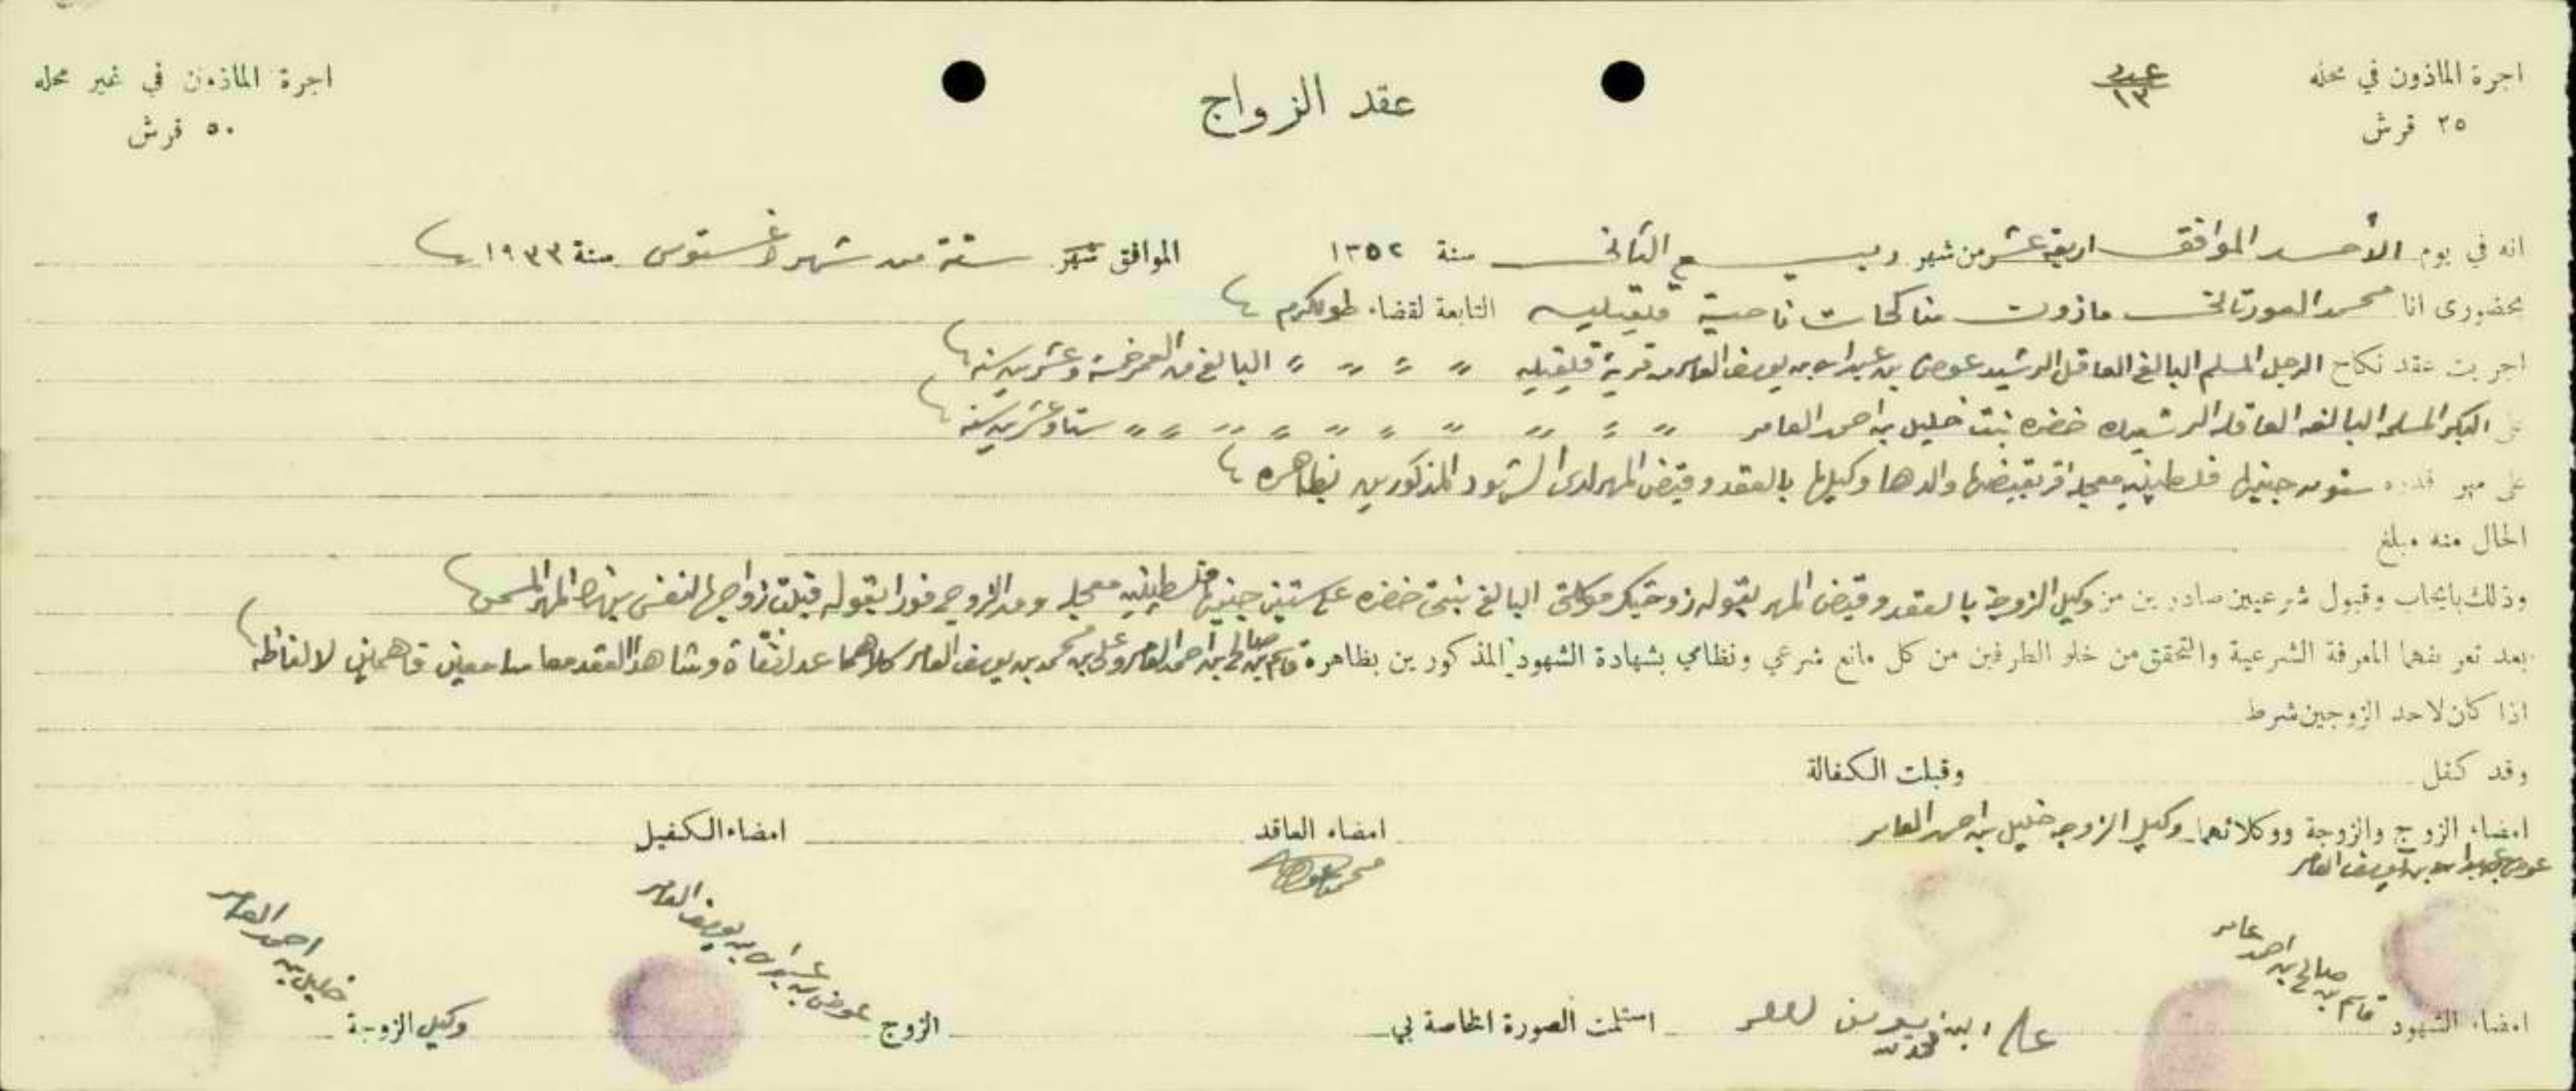 اجرة الماذون في محله
٢٥ قرش
عدد
١٣
عقد الزواج
اجرة الماذون في غير محله
٥٠ قرش
انه في يوم الأحد الموافق اربعة عشر من شهر ربيع الثاني سنة ١٣٥٢ الموافق شهر ستة من شهر اغستوس سنة ١٩٣٣
بحضوري انا محمد مأذون مناكحات ناحية قلقيليه التابعة لقضاء طولكرم
اجريت عقد نكاح الرجل المسلم البالغ العاقل الرشيد عوض بن عبدالله بن يوسف العامر من قرية قلقيليه " " " " البالغ من العمر خمسة وعشرين سنه
على البكر المسلمه البالغه العاقله الرشيده خضره بنت خليل بن احمد العامر " " " " " " " " " " ستا وعشرين سنه
على مهر قدره ستون جنيها فلسطينيه معجله اقر بقبضها والدها وكيلها بالعقد وقبض المهر لدى الشهود المذكورين بظاهره
الحال منه مبلغ
وذلك بايجاب وقبول شرعيين صادرين من وكيل الزوجة بالعقد وقبض المهر بقوله زوجتك موكلتي البالغ بنتي خضره على ستين جنيها فلسطينيه معجله ومن الزوج فورا بقوله قبلت زواجها لنفسي بهذا المهر المسمى
بعد تعريفهما المعرفة الشرعية والتحقق من خلو الطرفين من كل مانع شرعي ونظامي بشهادة الشهود المذكورين بظاهره قاسم بن صالح بن احمد العامر وعلي بن محمد بن يوسف العامر كلاهما عدل ثقاة وشاهد العقد معا سامعين فاهمين لالفاظه
اذا كان لاحد الزوجين شرط
وقد كفل وقبلت الكفالة
امضاء الزوج والزوجة ووكلائهما وكيل الزوجه خليل بن احمد العامر امضاء العاقد امضاء الكفيل
عوض بن عبدالله بن يوسف العامر
محمد
امضاء الشهود قاسم بن صالح بن احمد عامر علي ابن محمد استلمت الصورة الخاصة بي الزوج عوض بن عبدالله بن يوسف العامر وكيل الزوجة خليل بن احمد العامر